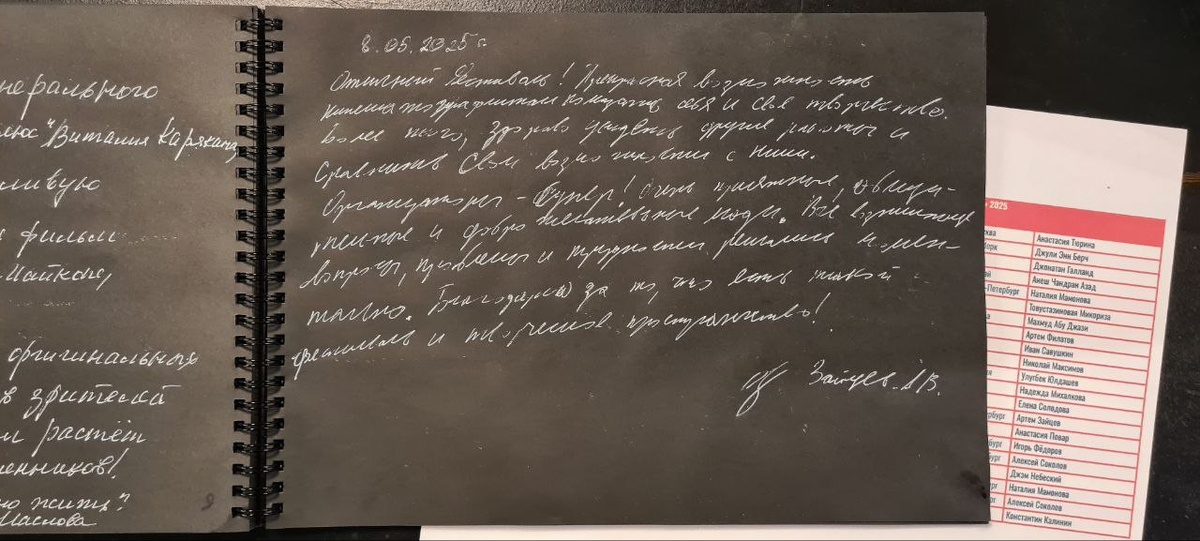 нерального
"Виталия Карякана
ливую
фильм
Майкане,
оригинальных
в зрителей
м растёт
ленников!
но жить?
Маслова
9
8.05.2025г.
Отличный Фестиваль! Прекрасная возможность
кинематографистам показать себя и своё творчество.
Более того, здорово увидеть другие работы и
сравнить свои возможности с ними.
Организаторы - супер! Очень приятные, общи-
тельные и доброжелательные люди. Все возникающие
вопросы, проблемы и трудности решались момен-
тально. Благодарю за то, что есть такой
фестиваль и творческое пространство!
Зайцев А.В.
2025
сква Анастасия Тюрина
Джули Энн Берч
Джонатан Галланд
Анеш Чандран Азад
-Петербург Наталия Мамонова
Товустазиновая Микориза
Махмуд Абу Джази
Артем Филатов
Иван Савушкин
Николай Максимов
Улугбек Юлдашев
Надежда Михалкова
Елена Солодова
рбург Артем Зайцев
Анастасия Повар
бург Игорь Фёдоров
бург Алексей Соколов
Джэм Небеский
рг Наталия Мамонова
Алексей Соколов
Константин Калинин